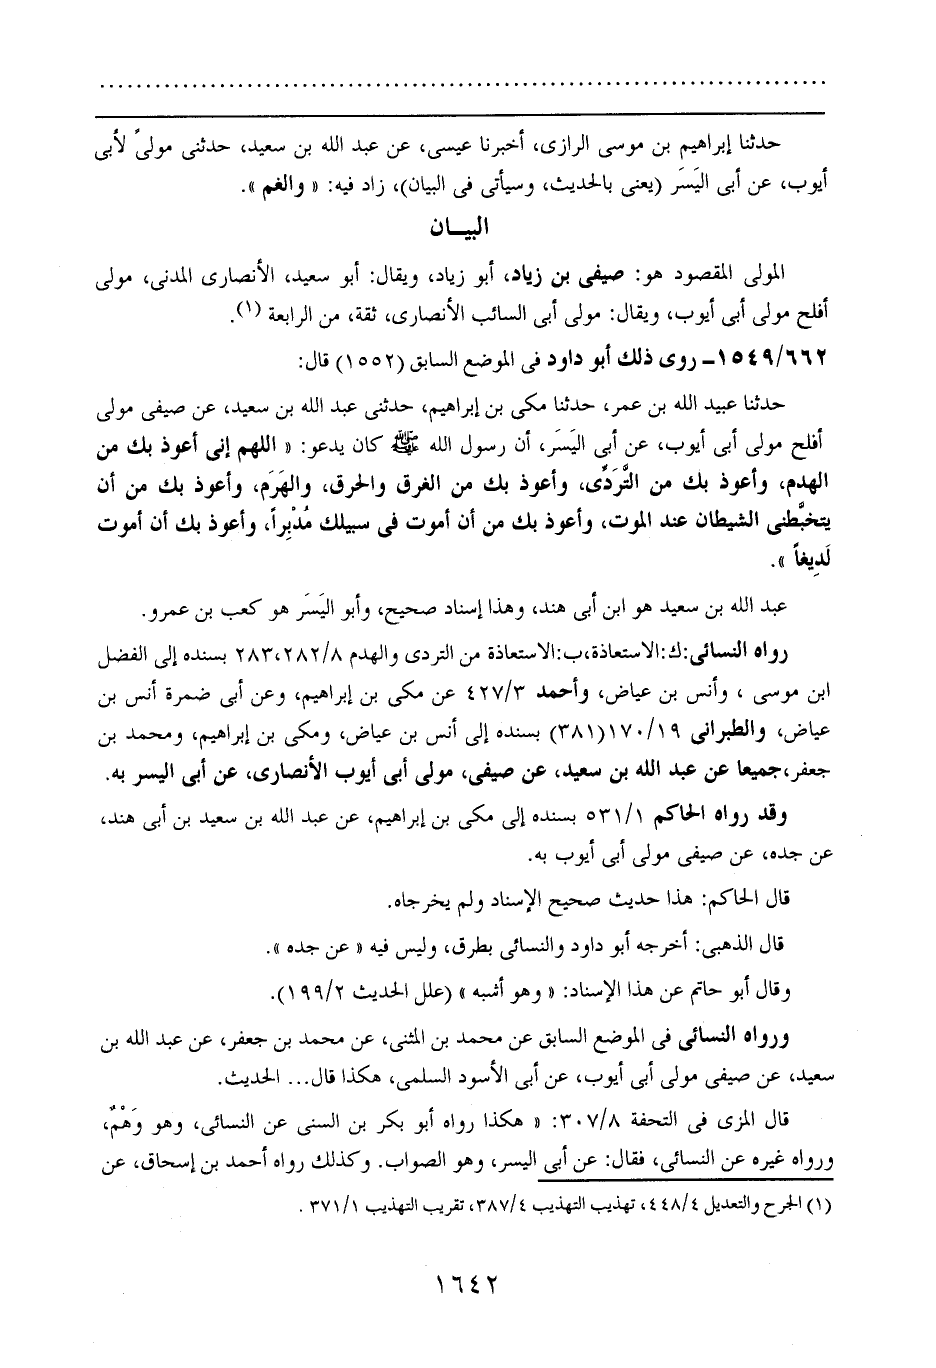 حدثنا إبراهيم بن موسى الرازى، أخبرنا عيسى، عن عبد الله بن سعيد، حدثنى مولىً لأبى
أيوب، عن أبى اليَسَر (يعنى بالحديث، وسيأتى فى البيان)، زاد فيه: « والغم ».
البيـــان
المولى المقصود هو: صيفى بن زياد، أبو زياد، ويقال: أبو سعيد، الأنصارى المدنى، مولى
أفلح مولى أبى أيوب، ويقال: مولى أبى السائب الأنصارى، ثقة، من الرابعة (١).
١٥٤٩/٦٦٢ـ روى ذلك أبو داود فى الموضع السابق (١٥٥٢) قال:
حدثنا عبيد الله بن عمر، حدثنا مكى بن إبراهيم، حدثنى عبد الله بن سعيد، عن صيفى مولى
أفلح مولى أبى أيوب، عن أبى اليَسَر، أن رسول الله ﷺ كان يدعو: « اللهم إنى أعوذ بك من
الهدم، وأعوذ بك من التَّرَدِّى، وأعوذ بك من الغرق والحرق، والهَرَم، وأعوذ بك من أن
يتخبَّطنى الشيطان عند الموت، وأعوذ بك من أن أموت فى سبيلك مُدْبِراً، وأعوذ بك أن أموت
لَدِيغاً ».
عبد الله بن سعيد هو ابن أبى هند، وهذا إسناد صحيح، وأبو اليَسَر هو كعب بن عمرو.
رواه النسائى:ك:الاستعاذة،ب:الاستعاذة من التردى والهدم ٢٨٣،٢٨٢/٨ بسنده إلى الفضل
ابن موسى ، وأنس بن عياض، وأحمد ٤٢٧/٣ عن مكى بن إبراهيم، وعن أبى ضمرة أنس بن
عياض، والطبرانى ١٧٠/١٩(٣٨١) بسنده إلى أنس بن عياض، ومكى بن إبراهيم، ومحمد بن
جعفر،جميعا عن عبد الله بن سعيد، عن صيفى، مولى أبى أيوب الأنصارى، عن أبى اليسر به.
وقد رواه الحاكم ٥٣١/١ بسنده إلى مكى بن إبراهيم، عن عبد الله بن سعيد بن أبى هند،
عن جده، عن صيفى مولى أبى أيوب به.
قال الحاكم: هذا حديث صحيح الإسناد ولم يخرجاه.
قال الذهبى: أخرجه أبو داود والنسائى بطرق، وليس فيه « عن جده ».
وقال أبو حاتم عن هذا الإسناد: « وهو أشبه » (علل الحديث ١٩٩/٢).
ورواه النسائى فى الموضع السابق عن محمد بن المثنى، عن محمد بن جعفر، عن عبد الله بن
سعيد، عن صيفى مولى أبى أيوب، عن أبى الأسود السلمى، هكذا قال... الحديث.
قال المزى فى التحفة ٣٠٧/٨: « هكذا رواه أبو بكر بن السنى عن النسائى، وهو وَهْمٌ،
ورواه غيره عن النسائى، فقال: عن أبى اليسر، وهو الصواب. وكذلك رواه أحمد بن إسحاق، عن
(١) الجرح والتعديل ٤٤٨/٤، تهذيب التهذيب ٣٨٧/٤، تقريب التهذيب ٣٧١/١ .
١٦٤٢